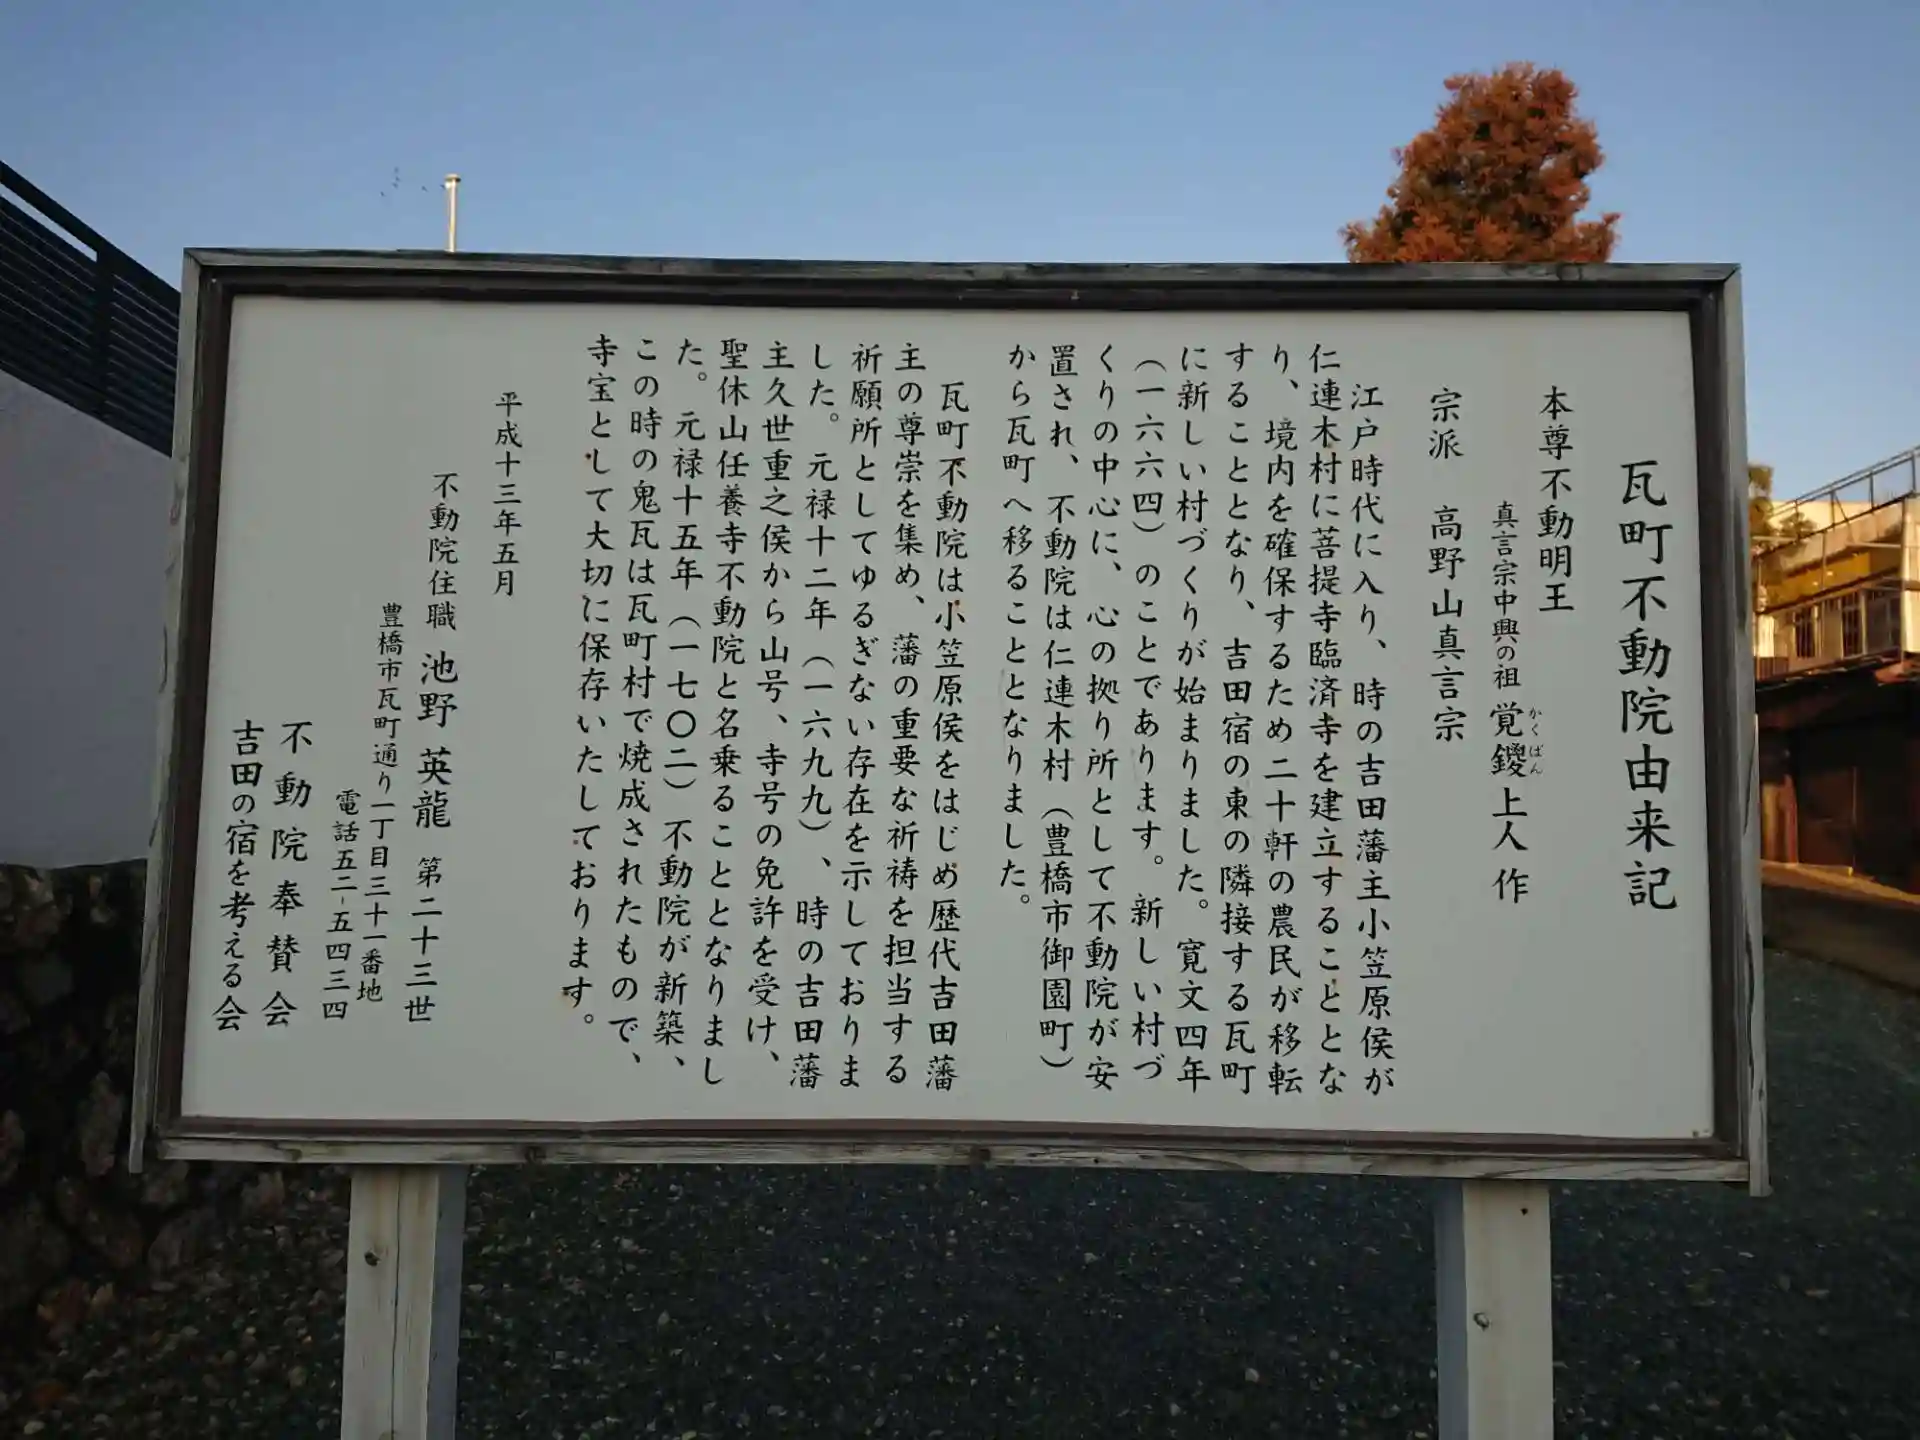 瓦町不動院由来記
本尊不動明王
真言宗中興の祖 覚鑁上人 作
かくばん
宗派 高野山真言宗
江戸時代に入り、時の吉田藩主小笠原侯が
仁連木村に菩提寺臨済寺を建立することとな
り、境内を確保するため二十軒の農民が移転
することとなり、吉田宿の東の隣接する瓦町
に新しい村づくりが始まりました。寛文四年
(一六六四)のことであります。新しい村づ
くりの中心に、心の拠り所として不動院が安
置され、不動院は仁連木村(豊橋市御園町)
から瓦町へ移ることとなりました。
瓦町不動院は小笠原侯をはじめ歴代吉田藩
主の尊崇を集め、藩の重要な祈祷を担当する
祈願所としてゆるぎない存在を示しておりま
した。元禄十二年(一六九九)、時の吉田藩
主久世重之侯から山号、寺号の免許を受け、
聖休山任養寺不動院と名乗ることとなりまし
た。元禄十五年(一七〇二)不動院が新築、
この時の鬼瓦は瓦町村で焼成されたもので、
寺宝として大切に保存いたしております。
平成十三年五月
不動院住職 池野 英龍 第二十三世
豊橋市瓦町通り一丁目三十一番地
電話五二-五四三四
不動院奉賛会
吉田の宿を考える会